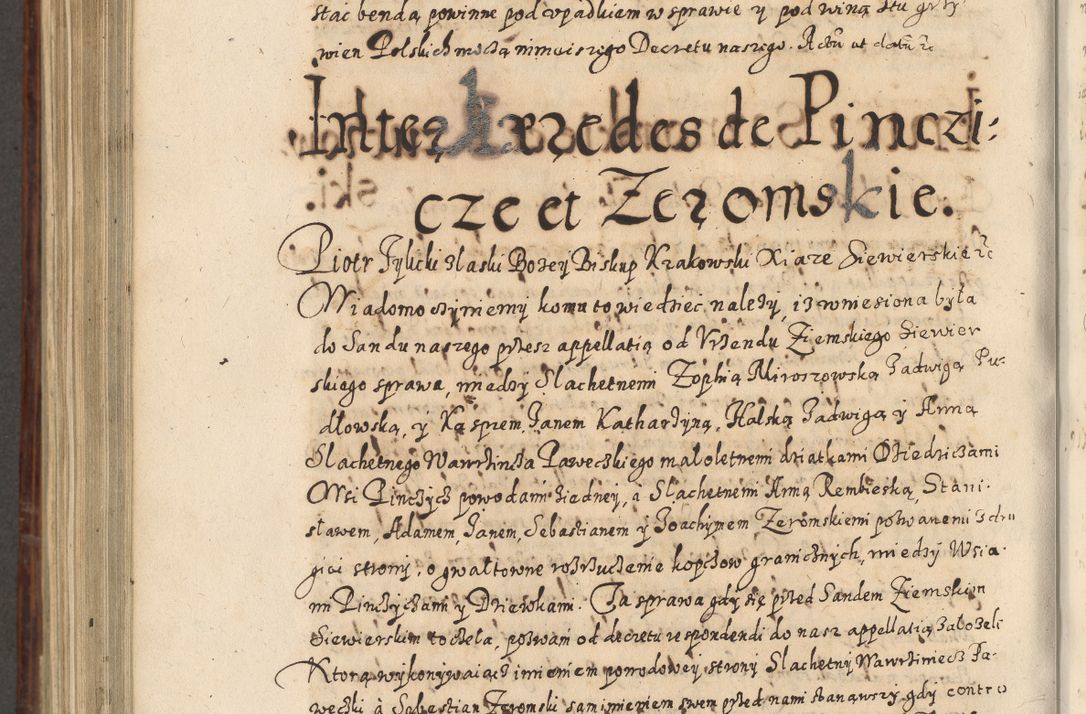 stać bendą powinne pod vpadkiem w sprawie y pod winą stu grzy:
wien Polskich mocą ninieiszego Decretu naszego. Actū ut datū rc
Inter Hæredes de Pinczi:
cze et Zeromskie.
Piotr Tylicki z laski Bozey Biskup Krakowski Xiąze Siewierskie rc
Wiadomo czyniemy komu to wiedzieć nalezy, iz wniesiona była
do Sandu naszego przesz appellatią od Vrzendu Ziemskiego Siewier
skiego sprawa, miedzy Slachetnemi Zophią Miroszowską Jadwigą Pu:
dłowską, y Kasprem, Janem Katharzyną, Halską Jadwigą y Anną
Slachetnego Wawrzinca Paweczkiego maloletnemi dziatkami Dziedziczami
Wsi Pinczych powodami z iedney, a Slachetnemi Anną Rembieską, Stani:
sławem, Adamem, Janem, Sebastianem y Joachymem Zeromskiemi pozwanemi z dru
giei strony, o gwaltowne rozrzucenie kopców granicznych, miedzy Wsia:
mi Pinczyczami y Dziewkami. Ta sprawa gdy się przed Sandem Ziemskiem
Siewierskim toczela, pozwani od decretu respondendi do nasz appellatią załozeli
Ktorą wykonywaiącz imieniem powodowey strony Slachetny Wawrziniecz Pa:
weczki a Sebastian Zeromski sam imieniem swem przed nami stanąwszy gdy contro